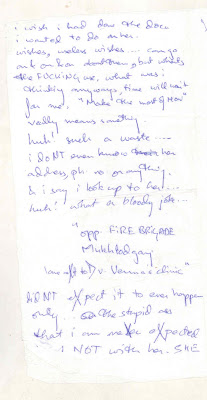 i wish i had done the deco
i wanted to do on her.
wishes, wishes.... can go
on & on & on about them, but whats
the FUCKING use, what was i
thinking anyways, time will wait
for me, "Make the most of NOW"
really means something.
huh! such a waste....
i DONT even know her
address, ph no. or anything.
& i say i look up to her....
huh! what a bloody joke...
"opp. FIRE BRIGADE
next to Dr. Verma's clinic"
DIDNT eXpect it to ever happen
only.. the stupid ass
that i am eXpected
i NOT with her. SHE